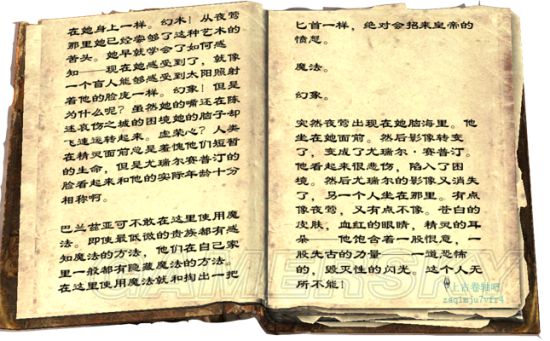 在她身上一样。幻术！从夜莺
那里她已经尝够了这种艺术的
苦头。她早就学会了如何感
知——现在她感受到了，就像
一个盲人能够感受到太阳照射
着他的脸庞一样。幻象！但是
为什么呢？虽然她的嘴还在陈
述哀伤之城的困境她的脑子却
飞速运转起来。虚荣心？人类
在精灵面前总是羞愧他们短暂
的生命，但是尤瑞尔·赛普汀的
脸看起来和他的实际年龄十分
相称啊。
巴兰兹亚可不敢在这里使用魔
法。即使最低微的贵族都有感
知魔法的方法，他们在自己家
里一般都有隐藏魔法的方法。
在这里使用魔法就和掏出一把
匕首一样，绝对会招来皇帝的
愤怒。
魔法。
幻象。
突然夜莺出现在她脑海里。他
坐在她面前。然后影像转变
了，变成了尤瑞尔·赛普汀。
他看起来很悲伤，陷入了困
境。然后尤瑞尔的影像又消失
了，另一个人坐在那里。有点
像夜莺，又有点不像。苍白的
皮肤，血红的眼睛，精灵的耳
朵——他饱含着一股恨意，一
股先古的力量——一道恐怖
的，毁灭性的闪光。这个人无
所不能！
GAMERSKY
上古卷轴吧
zaqimju7vfr4